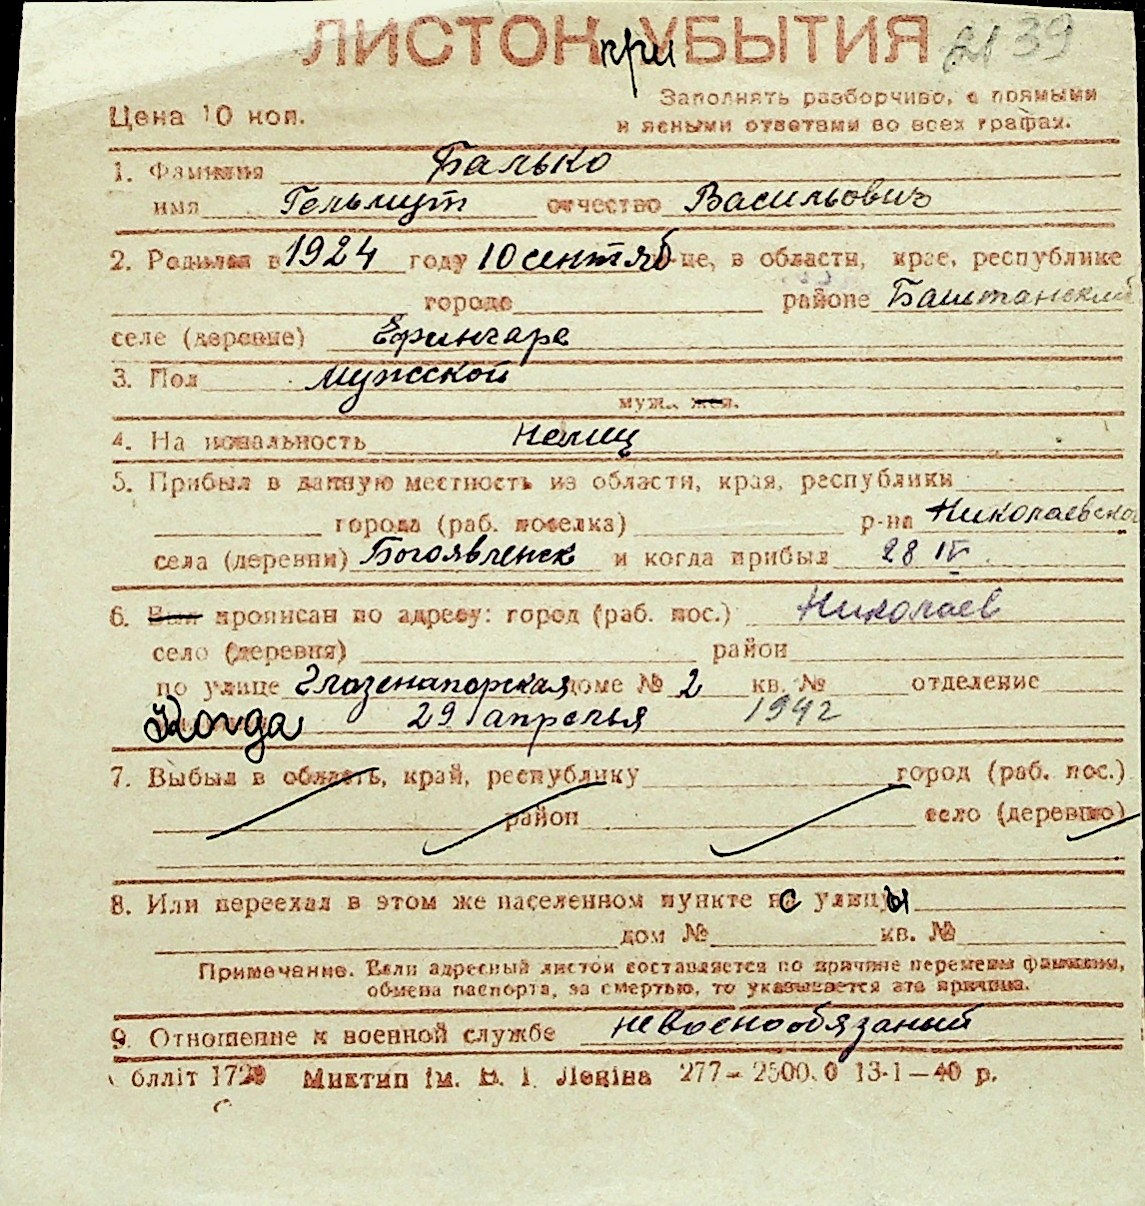 ЛИСТОК при УБЫТИЯ 2139
Цена 10 коп.
Заполнять разборчиво, с прямыми
и ясными ответами во всех графах.
1. Фамилия Балько
имя Гельмут отчество Васильович
2. Родился в 1924 году 10 сентяб -це, в области, крае, республике
городе районе Баштанский
селе (деревне) Ефингаре
3. Пол Мужской
муж., жен.
4. Национальность Немец
5. Прибыл в данную местность из области, края, республики
города (раб. поселка) р-на Николаевско
села (деревни) Богоявленск и когда прибыл 28 IV
6. Был прописан по адресу: город (раб. пос.) Николаев
село (деревня) район
по улице Глазенапорская доме № 2 кв. № отделение
Когда 29 апрелья 1942
7. Выбыл в область, край, республику город (раб. пос.)
район село (деревню)
8. Или переехал в этом же населенном пункте с улицы
дом № кв. №
Примечание. Если адресный листок составляется по причине перемены фамилии,
обмена паспорта, за смертью, то указывается эта причина.
9. Отношение к военной службе невоенообязаный
блліт 1729 Миктип ім. В. І. Леніна 277 - 2500.0 13-1-40 р.